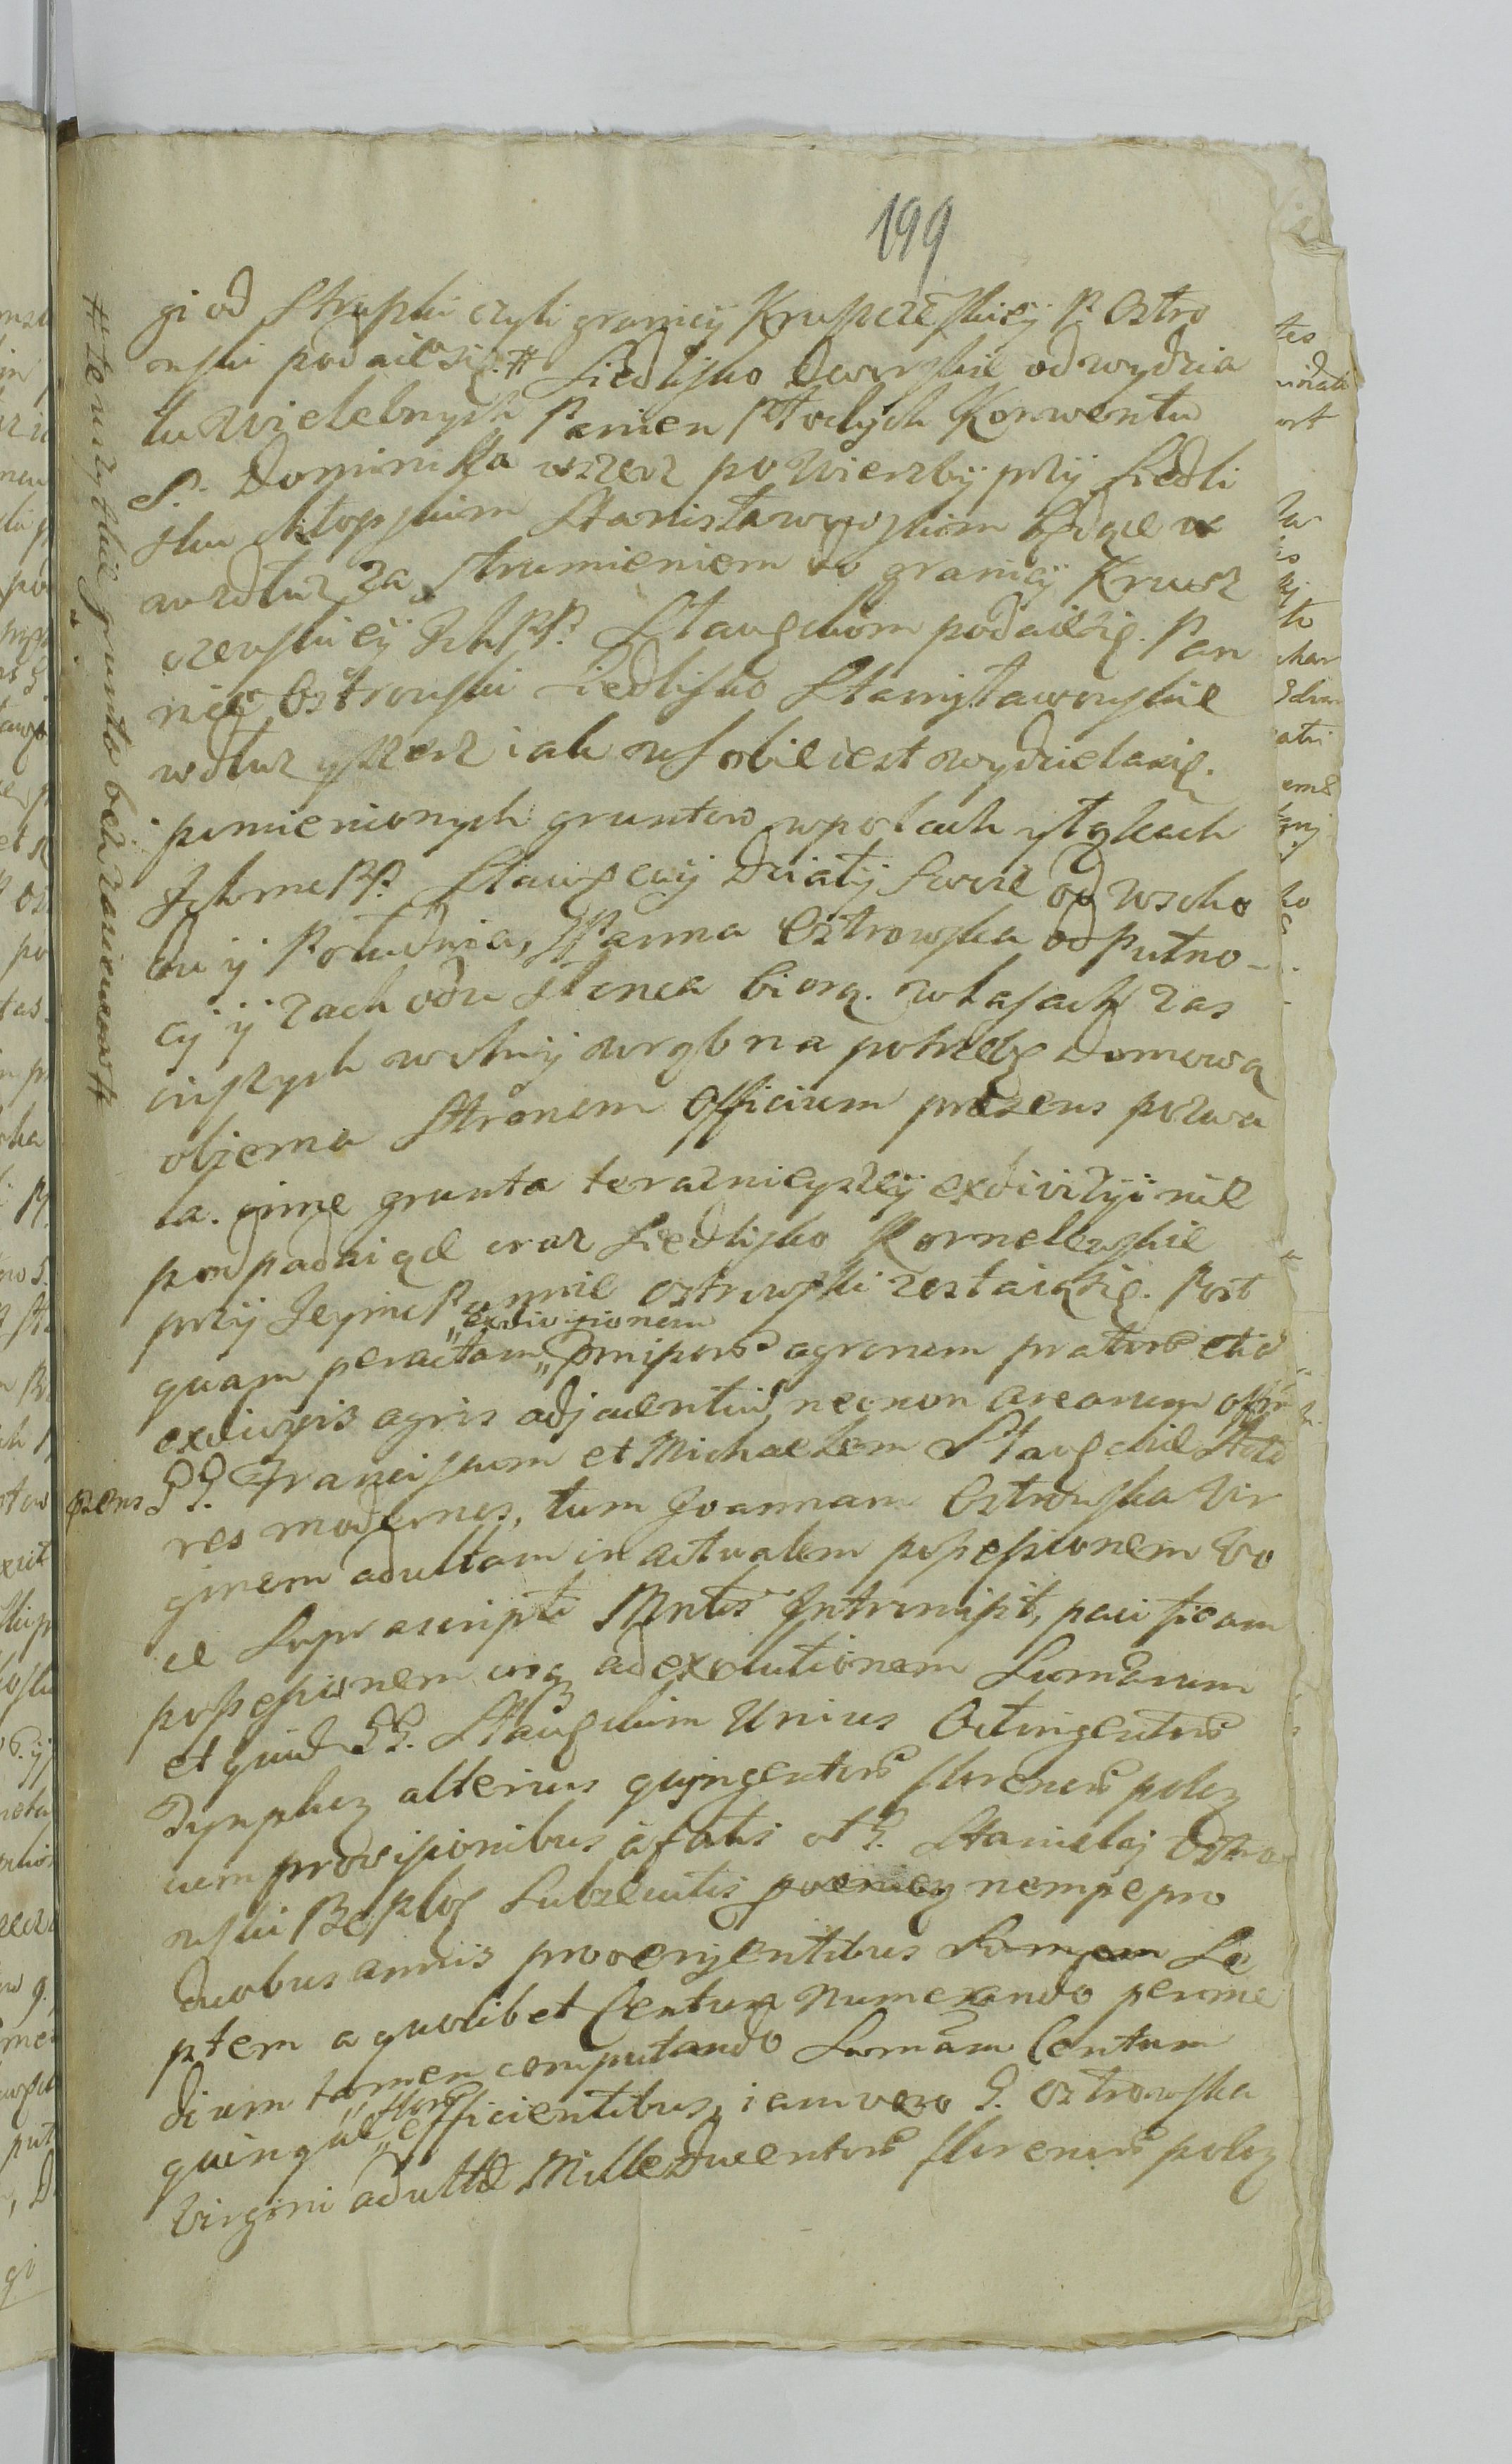 199
gi od Strugski czyli granicy Kruszczeskiey P. Ostro
wski podaie się. # Siedlisko Dworskie od wydzia
łu Wielebnych Panien Ptockych Konwentu
S. Dominika wszerz po Wierzby przy Siedli
sku chłopskim Stanisławowskim będące a
wzdłuż za strumieniem do granicy Krusz
czewskiey Ich PP. Stawskim podaie się. Pan
nie Ostrowski Siedlisko Stanisławowskie
wdłuż y szerz iak w sobie iest wydziela się.
pomienionych gruntow w polach y łąkach
Ichmc PP. Stawscy działy swoie od wscho
du y Południa, JPanna Ostrowska od pułno-
cy y zachodu słonca biorą. w lasach zas
inszych wolny wrąb na potrzebę domową
obiema Stronom Officium præsens pozwa
la. inne grunta teraznieyszey exdivizyi nie
podpadaiące oraz Siedlisko Kornelewskie
przy Jeymc Pannie Ostrowski zostaią się. Post
quam peractam „exdivisionem„ præmissorum agrorum pratorum et de
exdivisis agris adjacentium necnon arearum offm
præns GG. Franciscum et Michaelem Stawskie
res modernos, tum Joannam Ostrowska Vir
ginem adultam in actualem possessionem Bo
ni suprascripti Mntis Intromisit, pacificam
possessionem usq ad exolutionem Summarum
et quid GG. Stawskim Unius Octingentorum
Tynphoz alterius quingentorum florenorum poloz
cum provisionibus a fatis ol G. Stanislaj Ostro
wski Bo plos subsecutis nempe pro
duobus annis provenientibus Se
ptem a quolibet Centum numerando perme
dium tamen computando Sumam Centum
quinque „flor„ efficientibus, iam vero G. Ostrowska
Virgini adultæ Mille Ducentorum florenorum poloz
# te wszystkie grunta beli zasiewa #